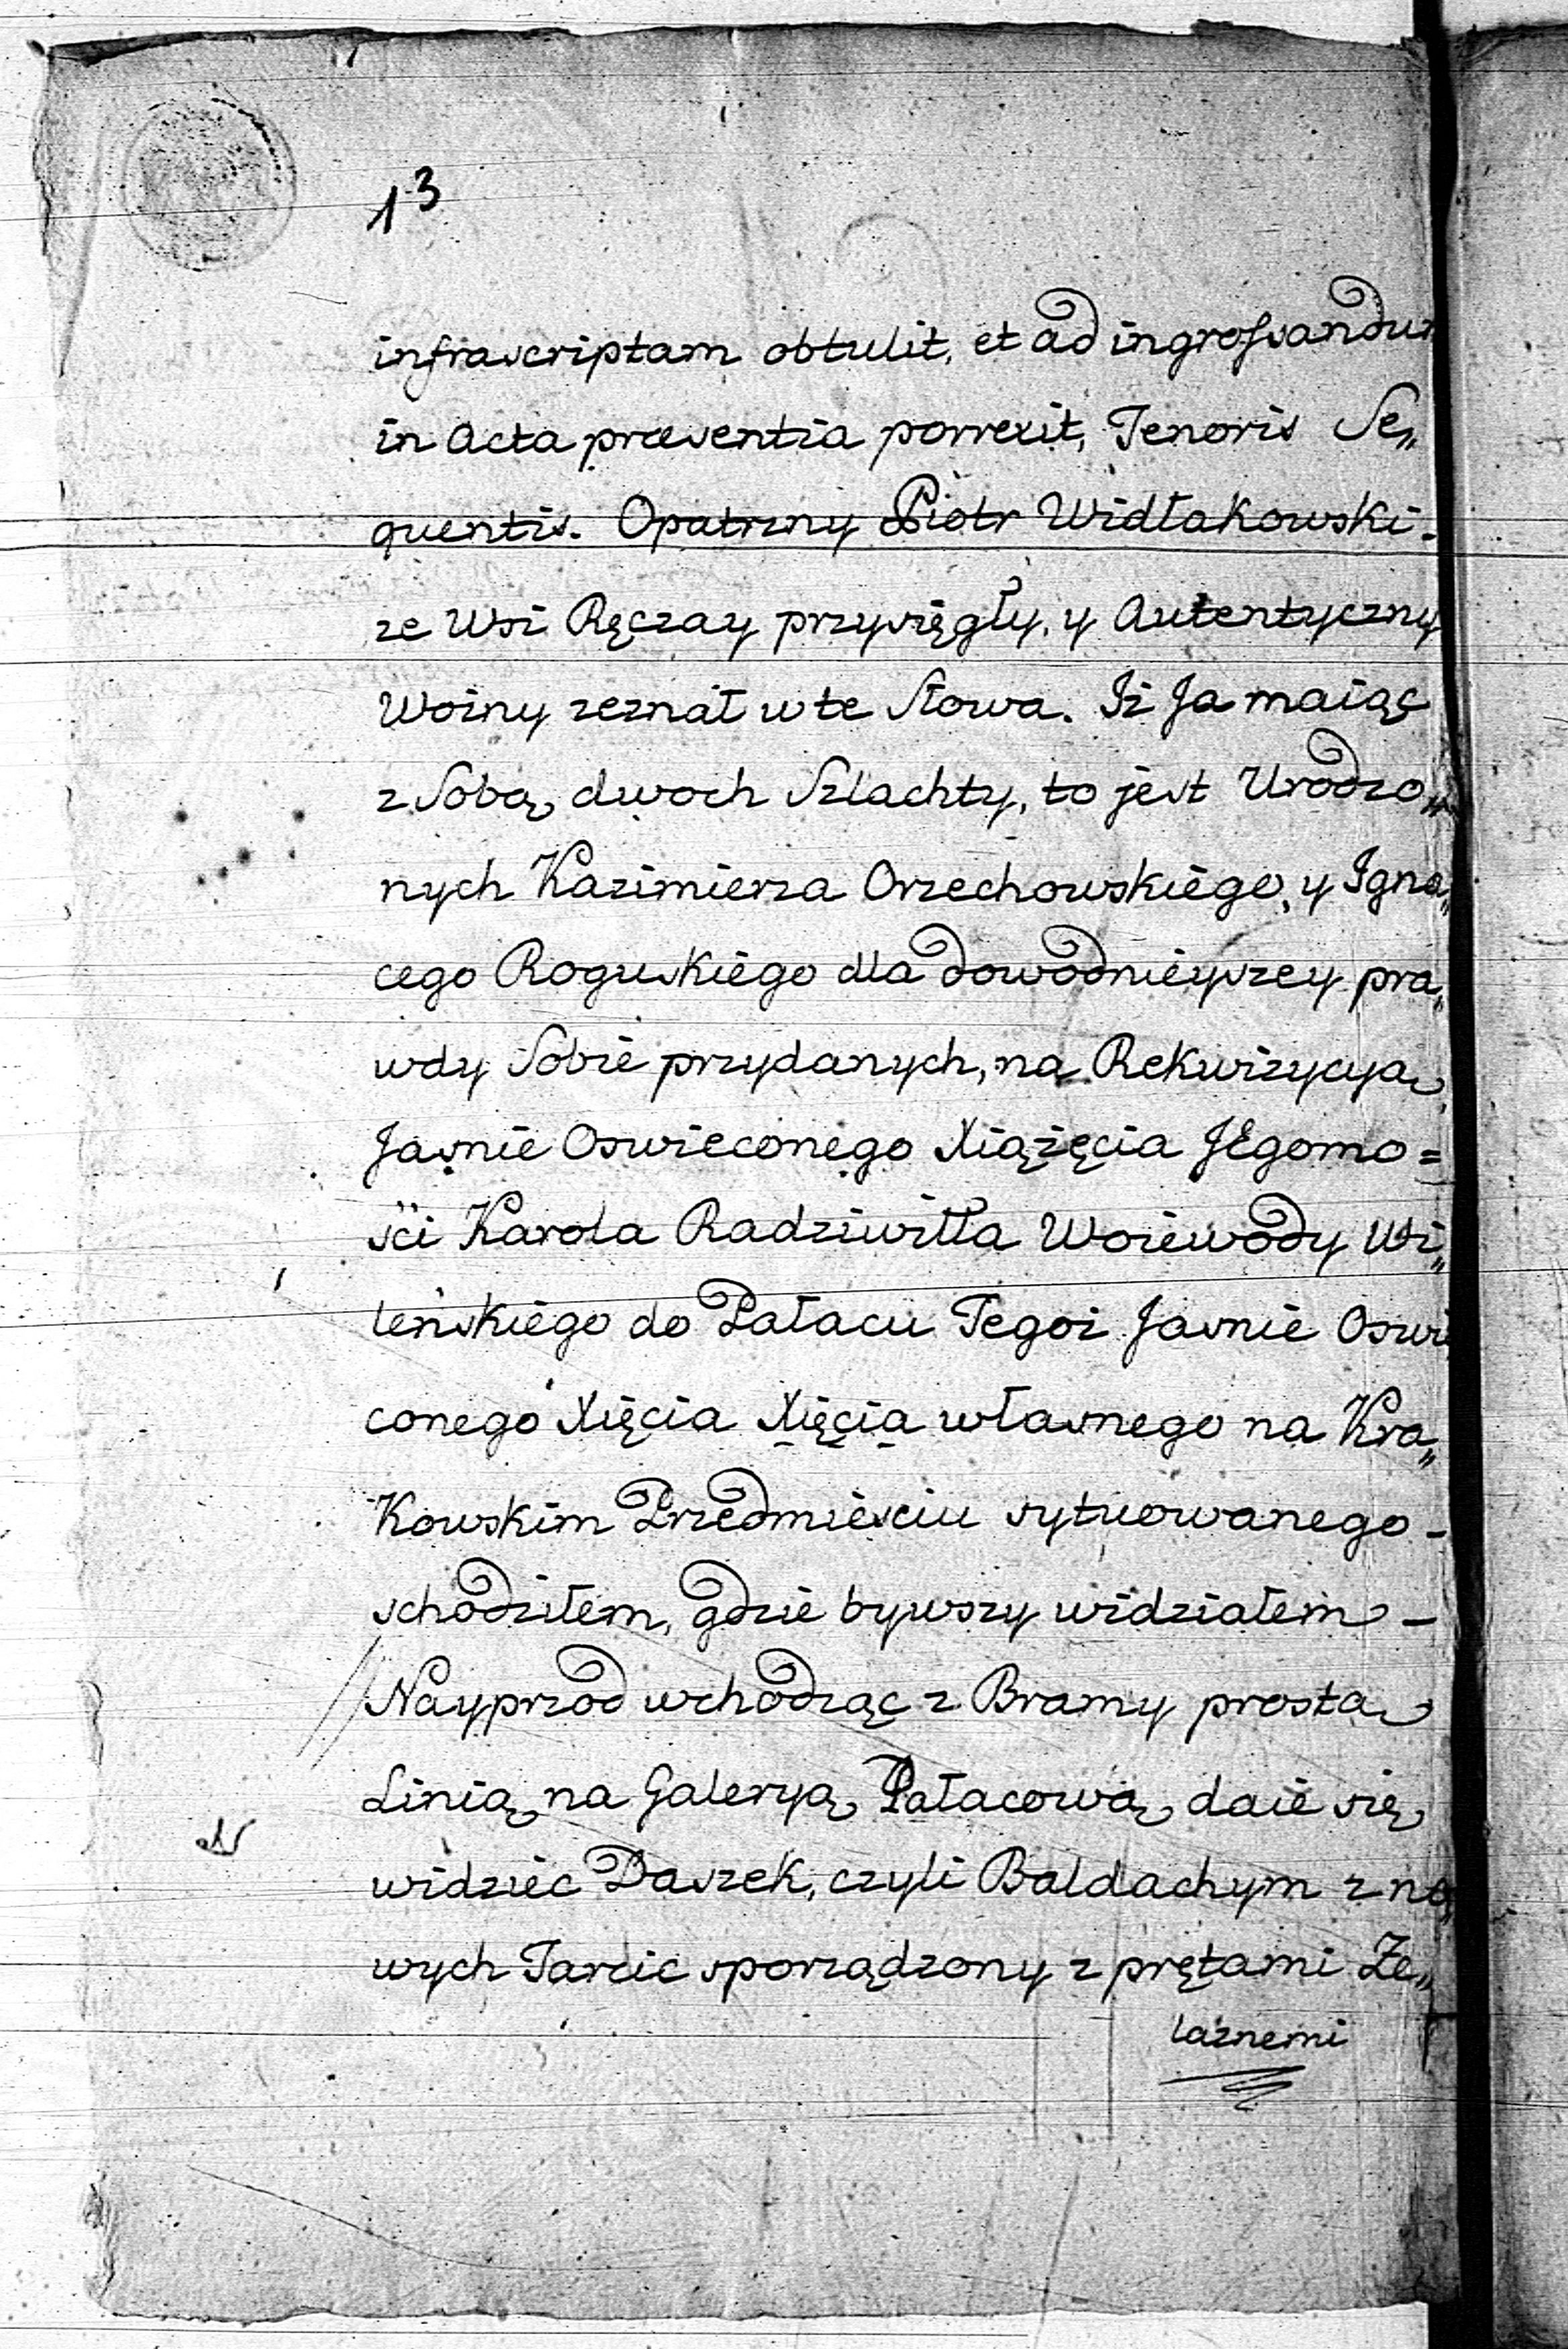 13
infrascriptam obtulit, et ad ingrossandum
in Acta præsentia porrexit, Tenoris Se„
quentis. Opatrzny Piotr Widłakowski.
ze Wsi Ręczay przysięgły, y Autentyczny
Wozny zeznał w te Słowa. Iż Ja maiąc
z Sobą dwoch Szlachty, to jest Urodzo„
nych Kazimierza Orzechowskiego, y Igna„
cego Roguskiego dla dowodnieyszey pra„
wdy Sobie przydanych, na Rekwizycyą
Jasnie Oswieconego Xiążęcia JEgomo=
ści Karola Radziwiłła Woiewody Wi„
leńskiego do Pałacu Tegoż Jasnie Oswie
conego Xięcia Xięcia własnego na Kra„
kowskim Przedmiesciu sytuowanego -
schodziłem, gdzie bywszy widziałem -
Nayprzod wchodząc z Bramy prostą
Linią na Galeryą Pałacową daie się
widziec Daszek, czyli Baldachym z no„
wych Tarcic sporządzony z prętami Że„
laznemi